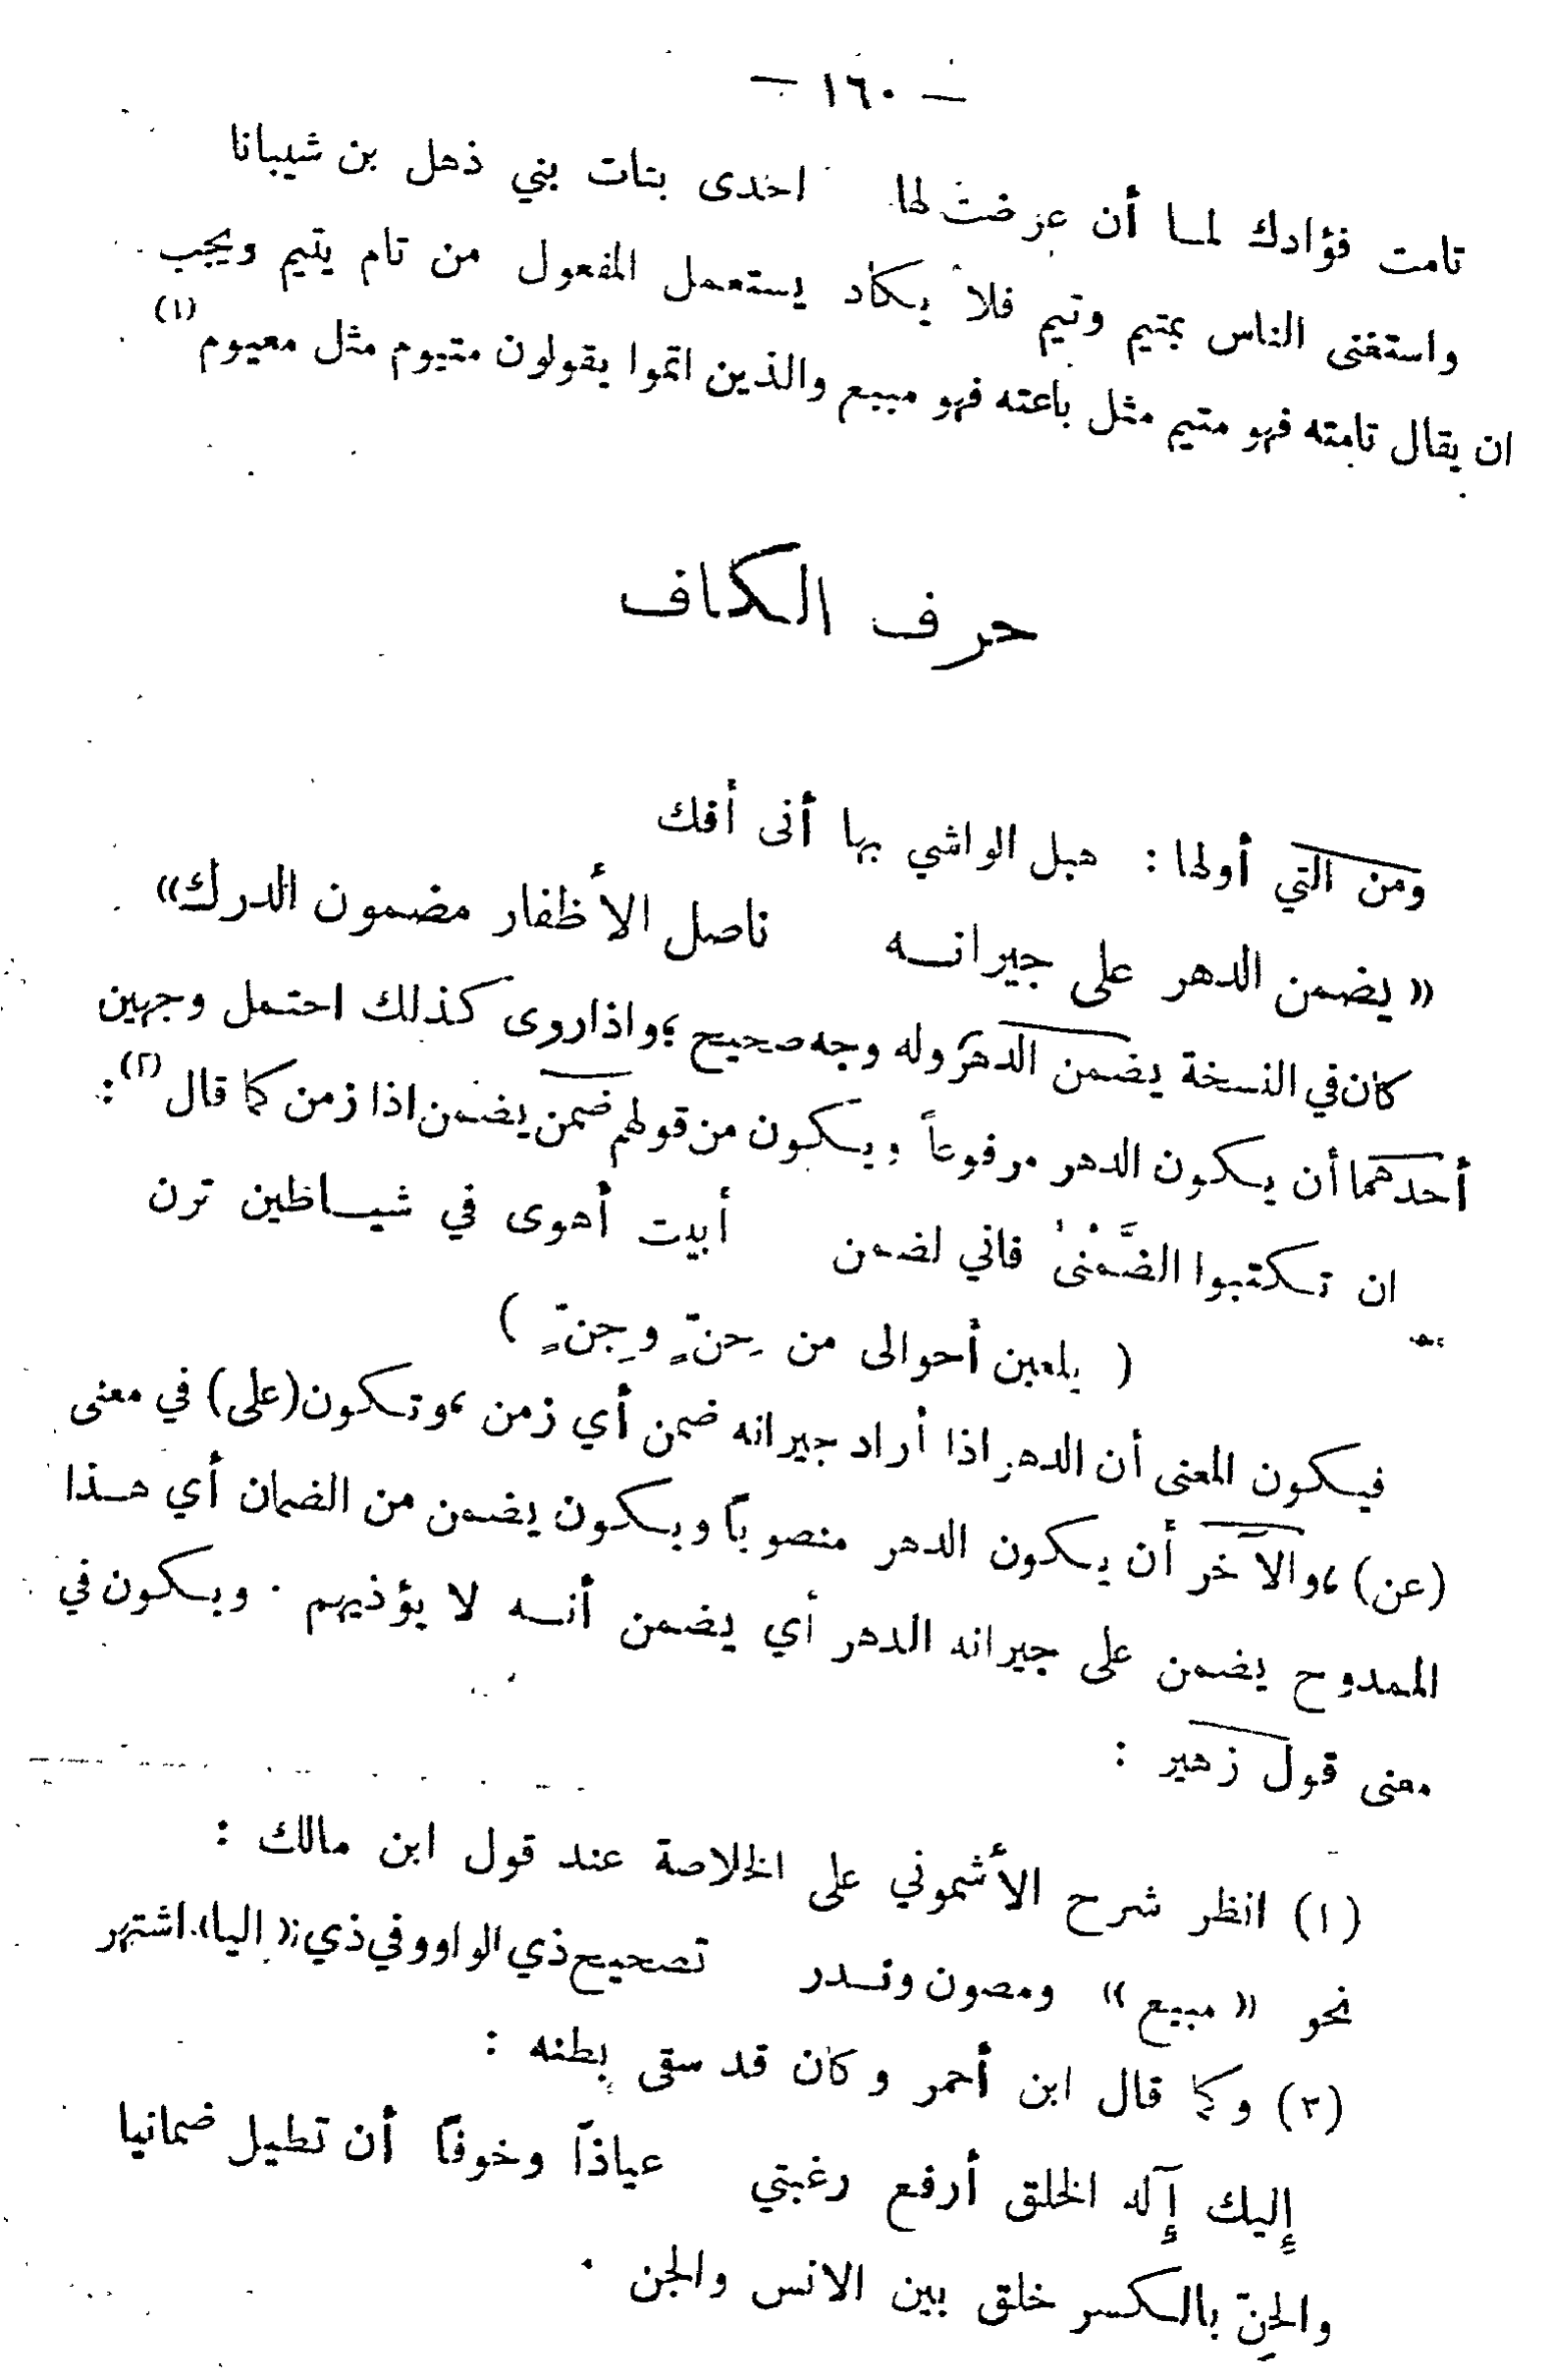 — ١٦٠ —
تامت فؤادك لمـا أن عرضتَ لها احدى بنات بني ذهل بن شيبانا
واستغنى الناس بمتيم وتيم فلا يكاد يستعمل المفعول من تام يتيم ويجب
ان يقال تامته فهو متيم مثل باعته فهو مبيع والذين اتموا يقولون متيوم مثل معيوم (١)
حرف الكاف
ومن التي أولها : هبل الواشي بها أنى أفك
« يضمن الدهر على جيرانـه ناصل الأظفار مضمون الدرك»
كان في النسخة يضمن الدهرَ وله وجه صحيح ؛ واذا روى كذلك احتمل وجهين
أحدهما أن يكون الدهر مرفوعاً ويكون من قولهم ضمن يضمن اذا زمن كما قال (٢) :
ان تكتبوا الضَّمْنىٰ فاني لضمن أبيت أهوى في شيـاظين ترن
( يلعبن أحوالى من حِنّ ٍ وجِنّ ٍ )
فيكون المعنى أن الدهر اذا أراد جيرانه ضمن أي زمن ، وتكون (على) في معنى
(عن) ، والآخر أن يكون الدهر منصوباً ويكون يضمن من الضمان أي هـذا
الممدوح يضمن على جيرانه الدهر أي يضمن أنـه لا يؤذيهم . ويكون في
معنى قول زهير :
(١) انظر شرح الأشموني على الخلاصة عند قول ابن مالك :
نحو « مبيع » ومصون ونـدر تصحيح ذي الواو وفي ذي « اليا » اشتهر
(٢) وكما قال ابن أحمر وكان قد سقى بطنه :
إِليك إِآله الخلق أرفع رغبتي عياذاً وخوفاً أن تطيل ضمانيا
والحِنّ بالكسر خلق بين الانس والجن .